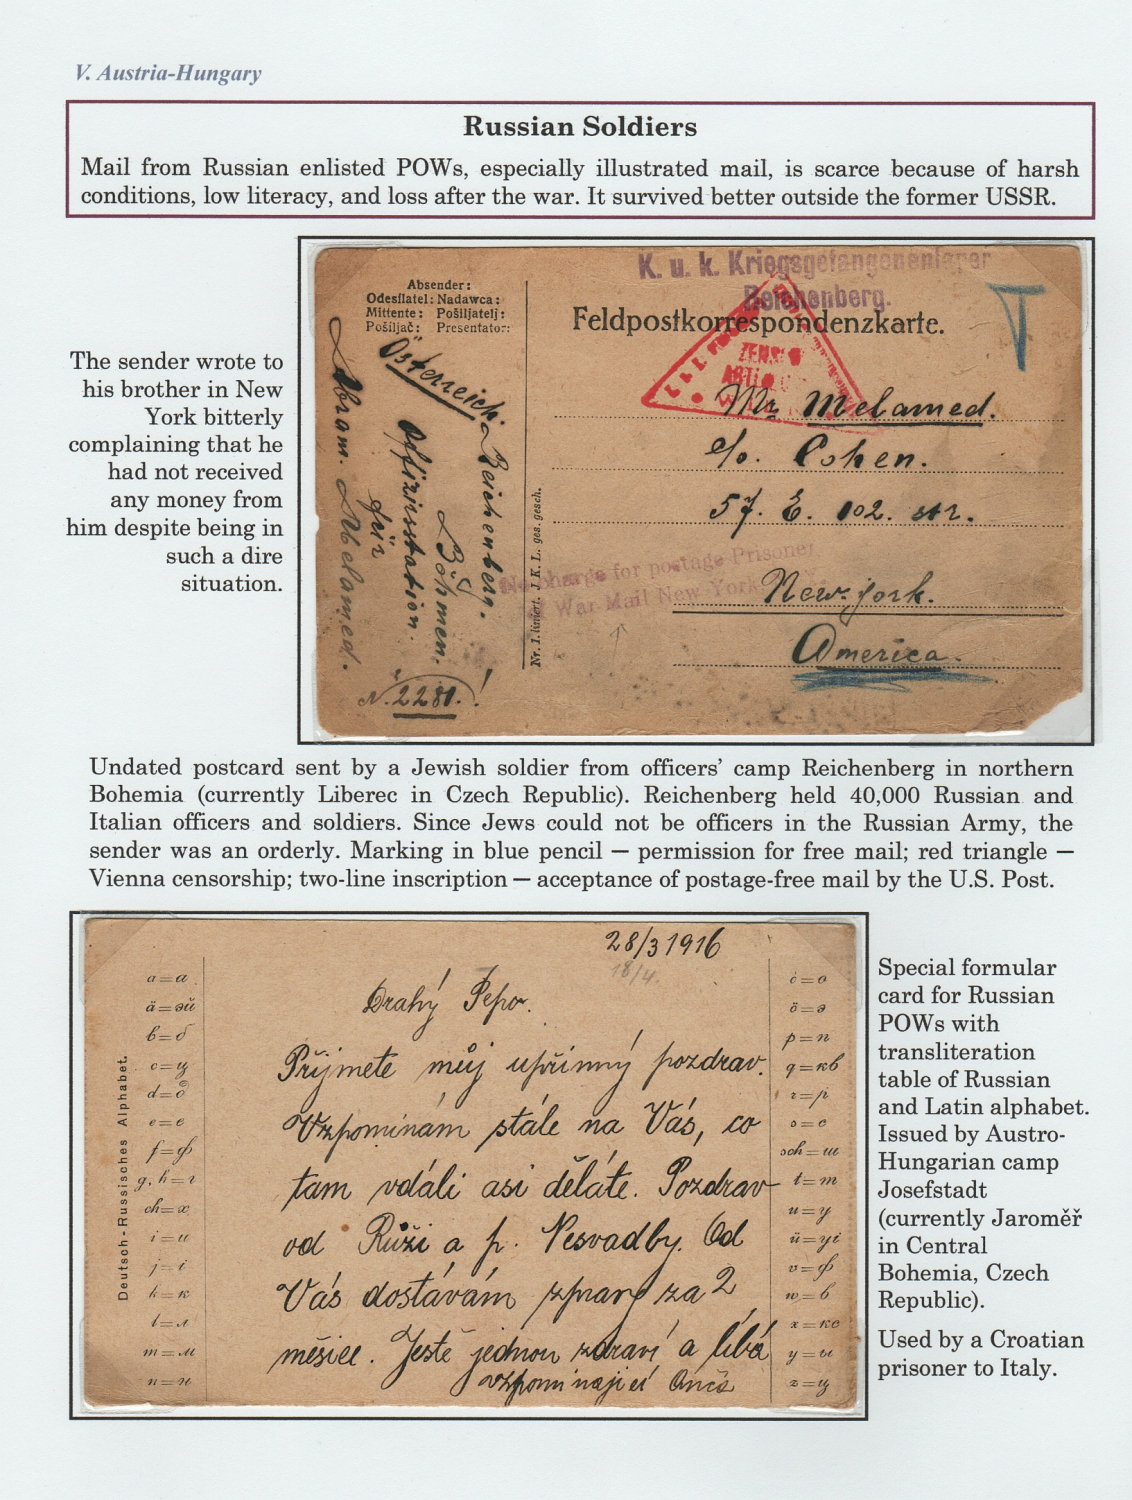 V. Austria-Hungary
Russian Soldiers
Mail from Russian enlisted POWs, especially illustrated mail, is scarce because of harsh
conditions, low literacy, and loss after the war. It survived better outside the former USSR.
The sender wrote to
his brother in New
York bitterly
complaining that he
had not received
any money from
him despite being in
such a dire
situation.
K. u. k. Kriegsgefangenenlager
Reichenberg.
Feldpostkorrespondenzkarte.
T
Absender:
Odesílatel: Nadawca:
Mittente: Pošiljatelj:
Pošiljač: Presentator:
Österreich
Reichenberg.
Böhmen.
Offizirsstation.
für
Abram. Melamed.
N. 2281.!
Nr. 1. liniert. J. K. L. ges. gesch.
ZENSU
ABTL
Mr Melamed.
c/o. Cohen.
57. E. 102. str.
New-york.
America.
No charge for postage Prisoner
of War Mail New York
Undated postcard sent by a Jewish soldier from officers' camp Reichenberg in northern
Bohemia (currently Liberec in Czech Republic). Reichenberg held 40,000 Russian and
Italian officers and soldiers. Since Jews could not be officers in the Russian Army, the
sender was an orderly. Marking in blue pencil — permission for free mail; red triangle —
Vienna censorship; two-line inscription — acceptance of postage-free mail by the U.S. Post.
28/3 1916
18/4.
Drahý Pepo.
Přijmete můj upřímný pozdrav.
Vzpomínám stále na Vás, co
tam vdáli asi děláte. Pozdrav
od Růži a p. Nesvadby. Od
Vás dostávám zprav za 2
měsice. Ještě jednou zdraví a líbá
vzpomínající
Deutsch-Russisches Alphabet.
a=а
ä=эй
b=б
c=ц
d=д
e=е
f=ф
g, h=г
ch=х
i=и
j=і
k=к
l=л
m=м
n=н
o=о
ö=э
p=п
q=кв
r=р
s=с
sch=ш
t=т
u=у
ü=уі
v=ф
w=в
x=кс
y=ы
z=ц
Special formular
card for Russian
POWs with
transliteration
table of Russian
and Latin alphabet.
Issued by Austro-
Hungarian camp
Josefstadt
(currently Jaroměř
in Central
Bohemia, Czech
Republic).
Used by a Croatian
prisoner to Italy.